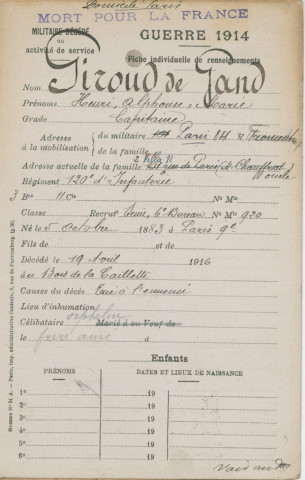 Domicile Paris
MORT POUR LA FRANCE
MILITAIRE DÉCÉDÉ
en
activité de service
GUERRE 1914
Fiche individuelle de renseignements
Nom Giroud de Gand
Prénoms Henri, Alphonse Marie
Grade Capitaine
Adresse à la mobilisation
du militaire Paris 84 r
de la famille
Adresse actuelle de la famille rue de Paris
Régiment 120e d'Infanterie
3 Bon 11 Cie No Mle
Classe Recrut Seine, 6e Bureau No Mle 920
Né le 5 octobre 1883 à Paris 9e
Fils de et de
Décédé le 19 Avril 1916
à au Bois de la Caillette
Causes du décès Tué à l'ennemi
Lieu d'inhumation
Célibataire orphelin Marié à ou Veuf de
le frère ainé à
Enfants
PRÉNOMS DATES ET LIEUX DE NAISSANCE
1o 19
2o 19
3o 19
4o 19
5o 19
6o 19
Voir au dos